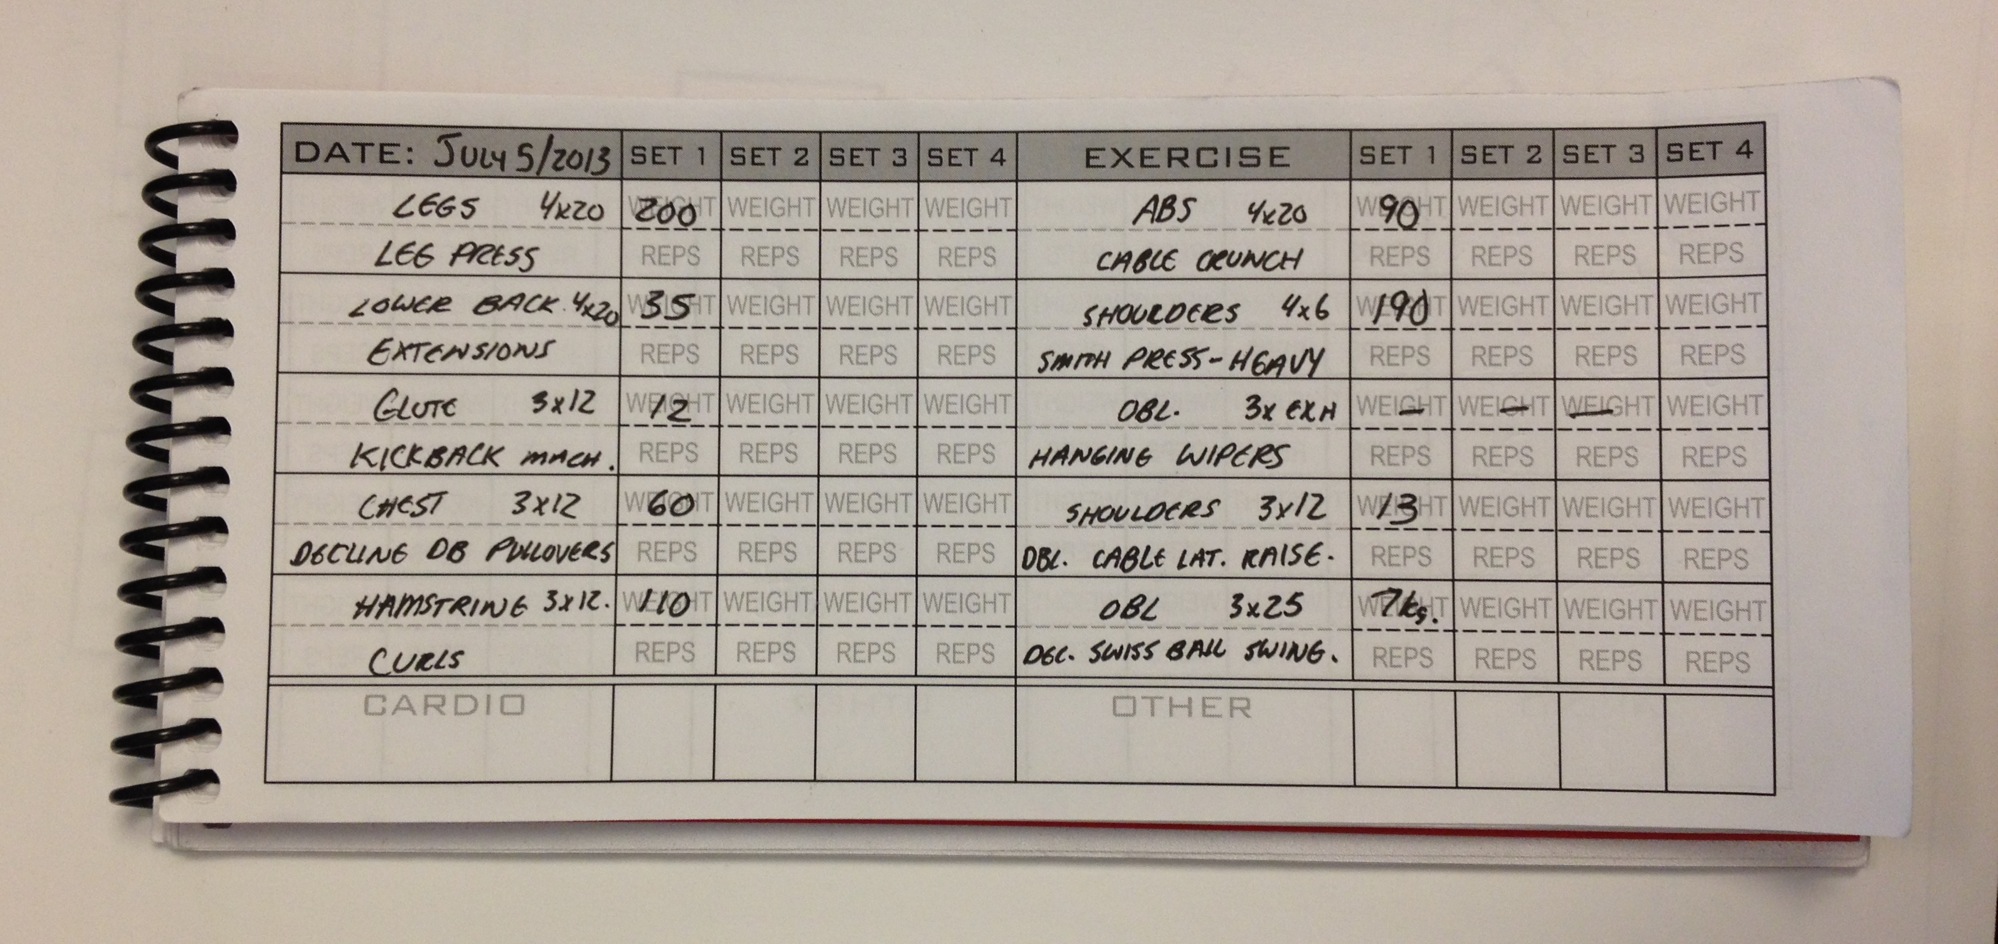 DATE: JULY 5/2013 SET 1 SET 2 SET 3 SET 4 EXERCISE SET 1 SET 2 SET 3 SET 4
LEGS 4x20 200 WEIGHT WEIGHT WEIGHT WEIGHT ABS 4x20 90 WEIGHT WEIGHT WEIGHT WEIGHT
LEG PRESS REPS REPS REPS REPS CABLE CRUNCH REPS REPS REPS REPS
LOWER BACK 4x20 35 WEIGHT WEIGHT WEIGHT WEIGHT SHOULDERS 4x6 190 WEIGHT WEIGHT WEIGHT WEIGHT
EXTENSIONS REPS REPS REPS REPS SMITH PRESS-HEAVY REPS REPS REPS REPS
GLUTE 3x12 12 WEIGHT WEIGHT WEIGHT WEIGHT OBL. 3x EXH — WEIGHT — WEIGHT — WEIGHT WEIGHT
KICKBACK MACH. REPS REPS REPS REPS HANGING WIPERS REPS REPS REPS REPS
CHEST 3x12 60 WEIGHT WEIGHT WEIGHT WEIGHT SHOULDERS 3x12 13 WEIGHT WEIGHT WEIGHT WEIGHT
DECLINE DB PULLOVERS REPS REPS REPS REPS DBL. CABLE LAT. RAISE. REPS REPS REPS REPS
HAMSTRING 3x12. 110 WEIGHT WEIGHT WEIGHT WEIGHT OBL 3x25 7kg. WEIGHT WEIGHT WEIGHT WEIGHT
CURLS REPS REPS REPS REPS DEC. SWISS BALL SWING. REPS REPS REPS REPS
CARDIO OTHER